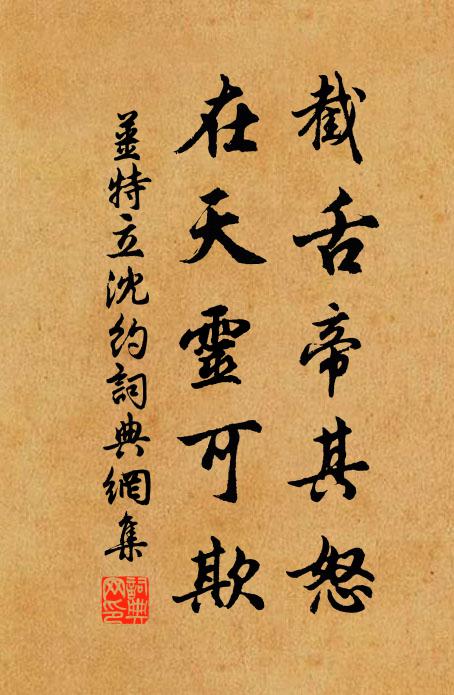 截舌帝其怒
在天靈可欺
姜特立沈約詞典網集
詞典網印